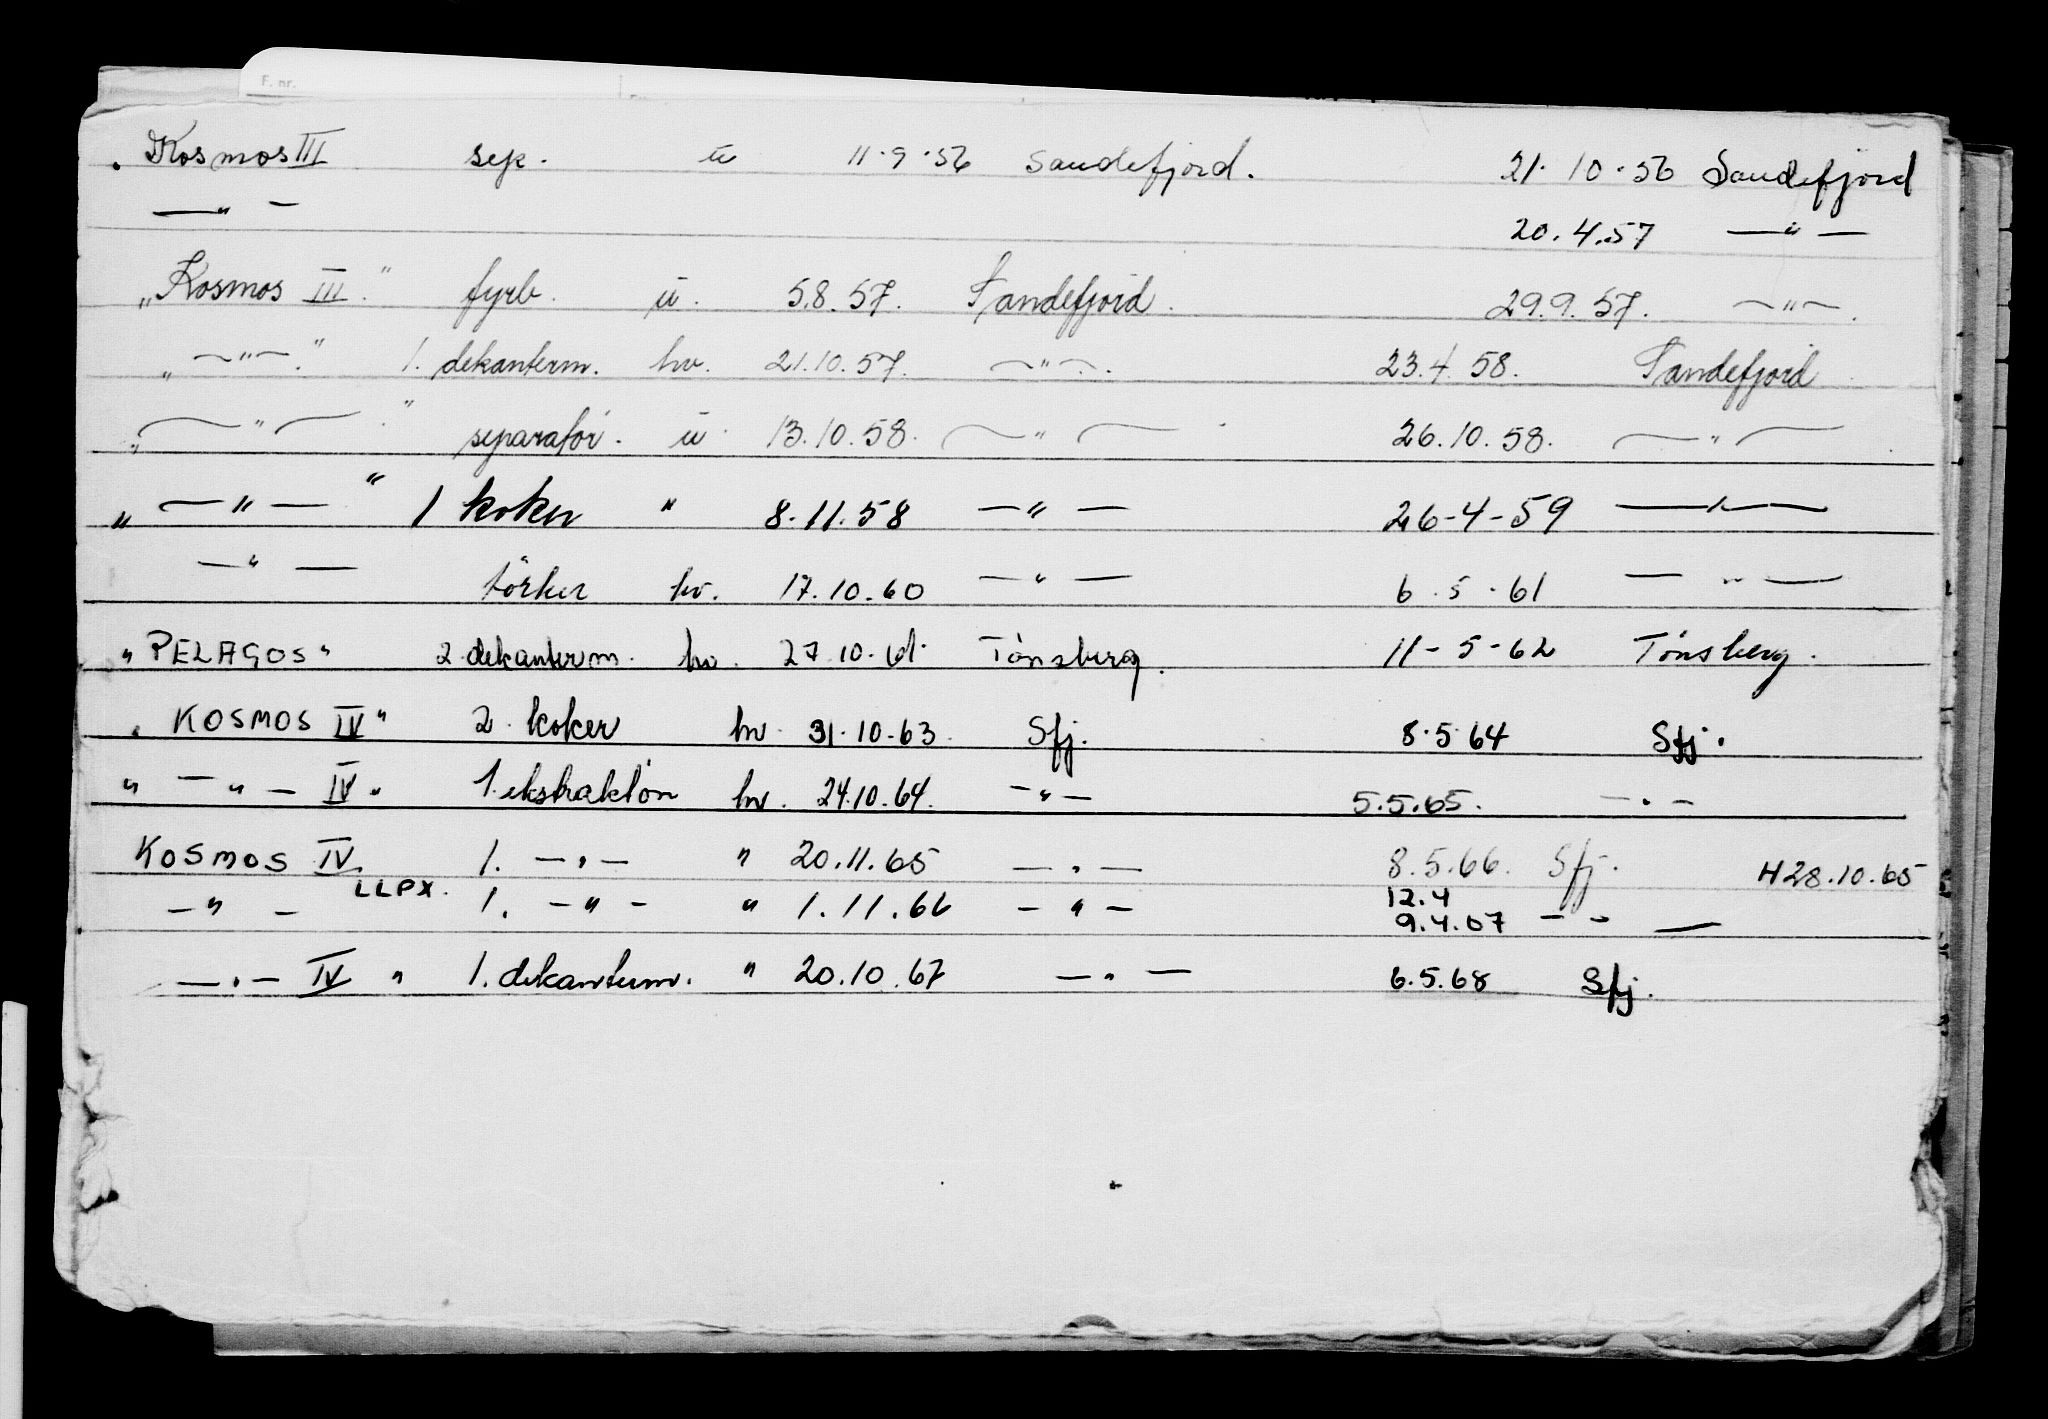 F. nr.
„ Kosmos III sep. u 11.9.56 Sandefjord. 21.10.56 Sandefjord
—"— 20.4.57 —"—
„Kosmos III." fyrb. u. 5.8.57. Sandefjord. 29.9.57. —"—.
„ —"—." 1. dekanterm. hv. 21.10.57. —"—. 23.4.58. Sandefjord
„ —"— ." separatör. u. 13.10.58. —"— 26.10.58. —"—
„ —"— " 1 koker " 8.11.58 —"— 26-4-59 —"—
—"— törker hv. 17.10.60 —"— 6.5.61 —"—
"PELAGOS" 2. dekanterm. hv. 27.10.61. Tönsberg. 11-5-62 Tönsberg.
„ KOSMOS IV" 2. koker hv. 31.10.63. Sfj. 8.5.64 Sfj.
" —"— IV" 1. ekstraktön hv. 24.10.64. —"— 5.5.65. —"—
KOSMOS IV 1. —"— " 20.11.65 —"— 8.5.66. Sfj. H28.10.65
LLPX.
—"— 1. —"— " 1.11.66 —"— 12.4
9.4.67 —"—
—"— IV " 1. dekanterm. " 20.10.67 —"— 6.5.68 Sfj.